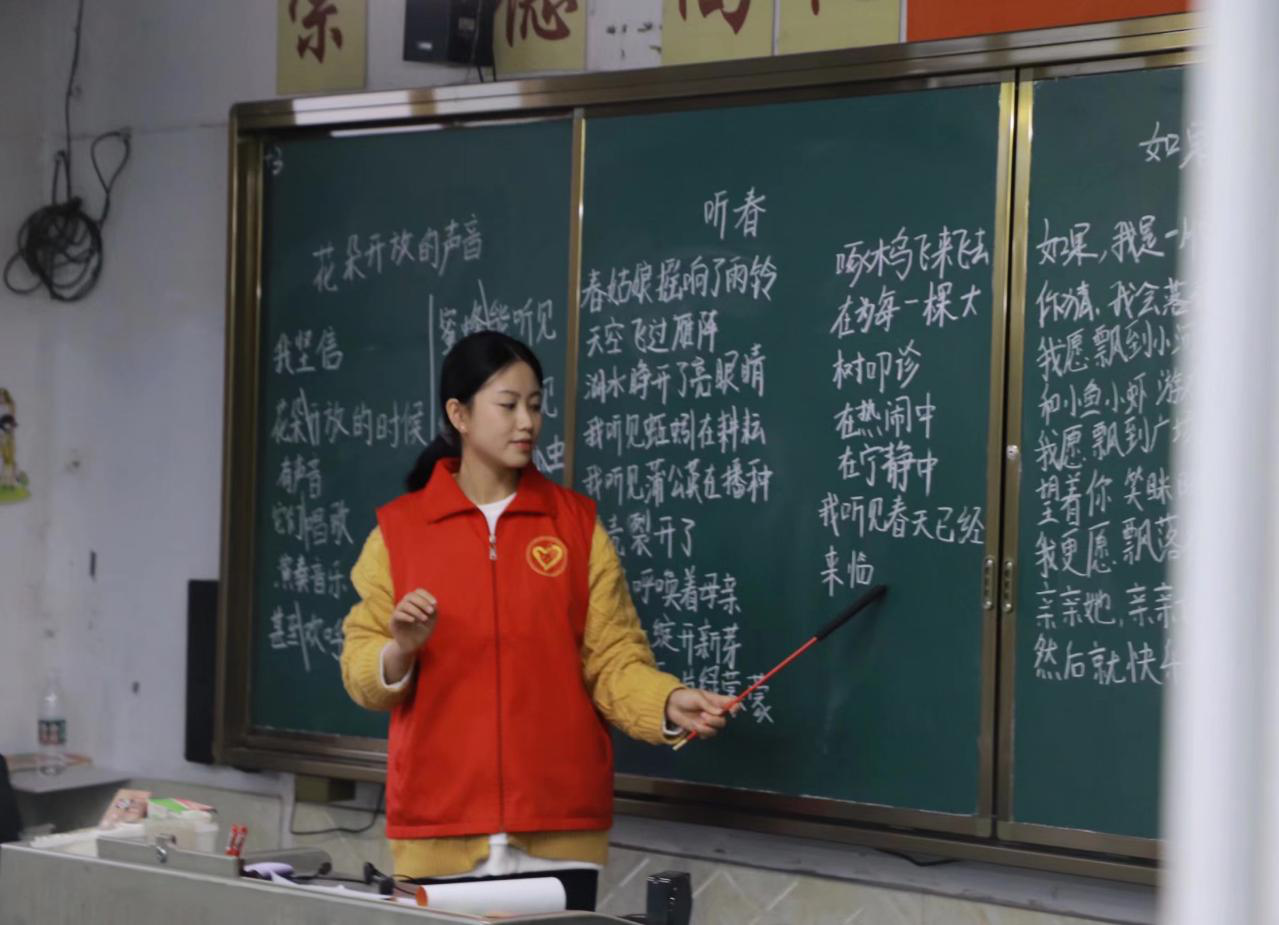 花朵开放的声音
我坚信
花朵开放的时候
有声音
它们唱歌
演奏音乐
甚到欢呼
蜜蜂能听见
见
听春
春姑娘摇响了雨铃
天空飞过雁阵
湖水睁开了亮眼睛
我听见蚯蚓在耕耘
我听见蒲公英在播种
壳裂开了
呼唤着母亲
绽开新芽
片绿蒙蒙
啄木鸟飞来飞去
在为每一棵大
树叩诊
在热闹中
在宁静中
我听见春天已经
来临
如果
如果,我是一
你猜,我会落
我愿飘到小河
和小鱼小虾游
我愿飘到广场
望着你笑眯
我更愿飘落
亲亲她,亲亲
然后就快乐